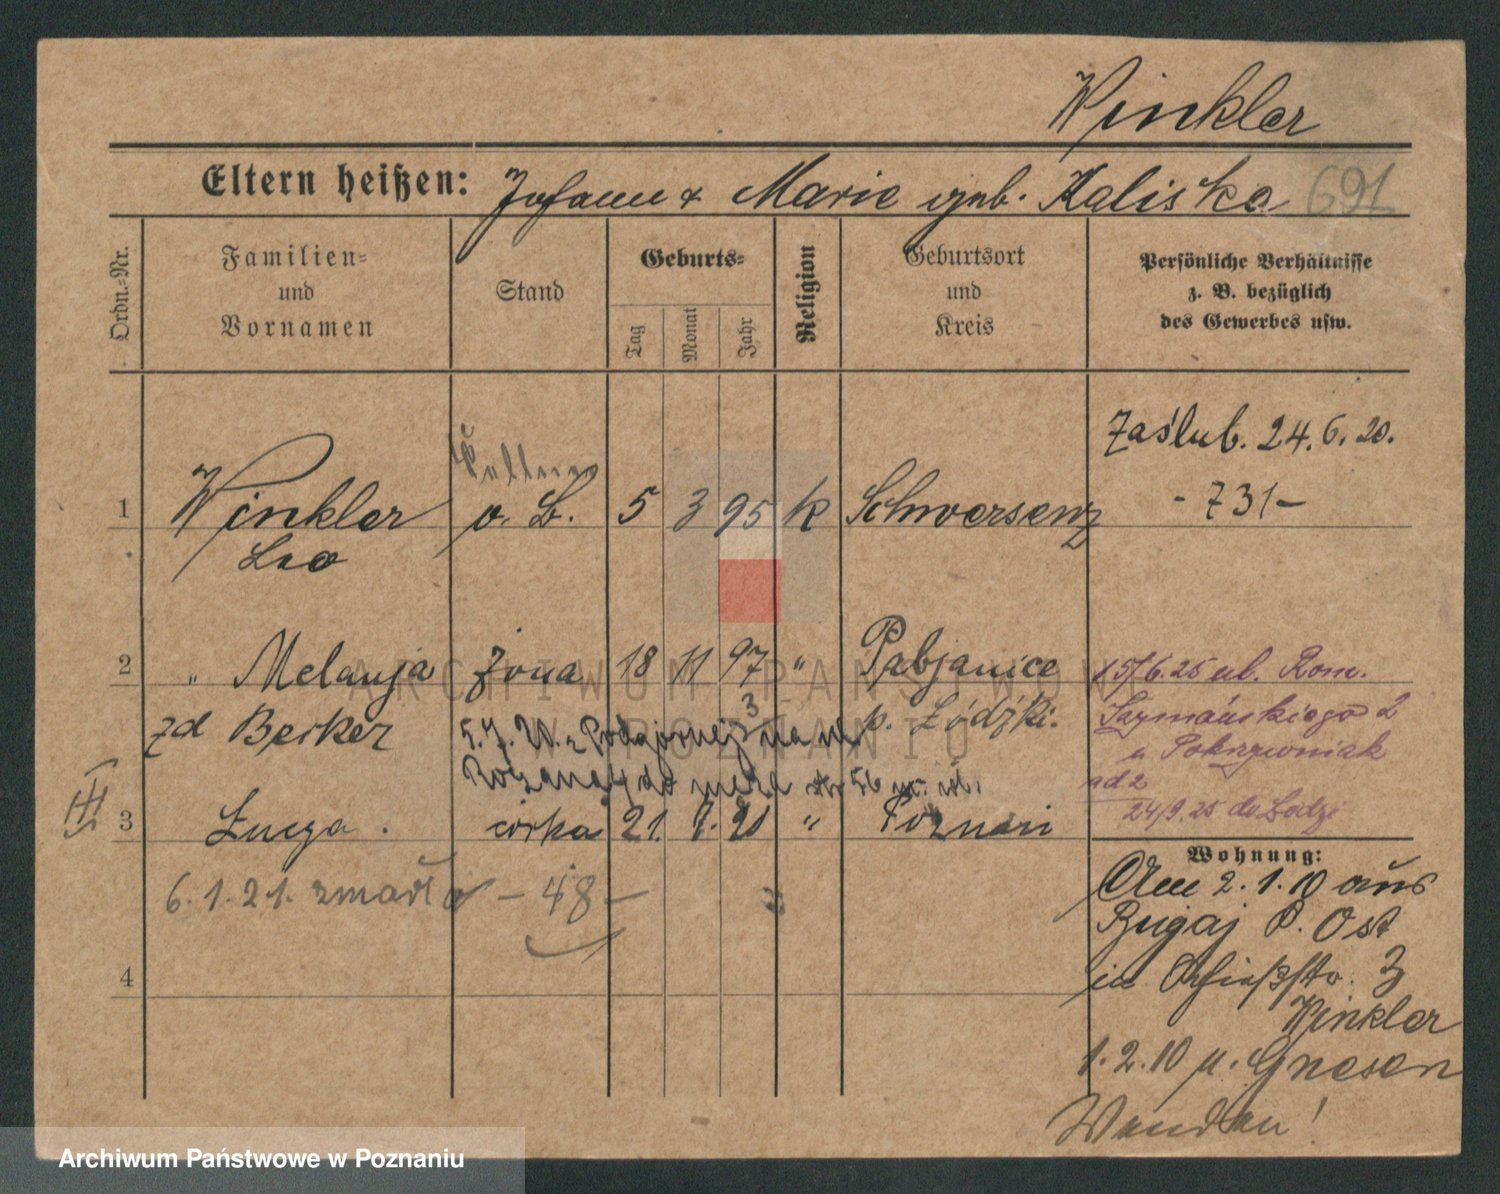 Winkler
Eltern heißen: Johann & Marie geb. Kaliska 691
Ordn.-Nr.
Familien- und Vornamen
Stand
Geburts-
Tag
Monat
Jahr
Religion
Geburtsort und Kreis
Persönliche Verhältnisse
z. B. bezüglich
des Gewerbes usw.
Zaślub. 24.6.20.
- 731 -
Kellner
1 Winkler o. B. 5 3 95 k Schwersenz
Leo
2 " Melanja żona 18 11 97 " Pabjanice
zd Becker p. Łódzki.
3
15/6.25 ul. Rom.
Szymańskiego 2
u Pokrzywniak
ad 2
24/9.25 do Łodzi
III
3 Łucya. córka 21. 9. 20 " Poznań
6.1.21. zmarła - 48 -
4
Wohnung:
Am 2.1.10 aus
Bugaj P. Ost
in Schießstr. 3
Winkler
1.2.10 n. Gnesen
ARCHIWUM PAŃSTWOWE
W POZNANIU
Archiwum Państwowe w Poznaniu